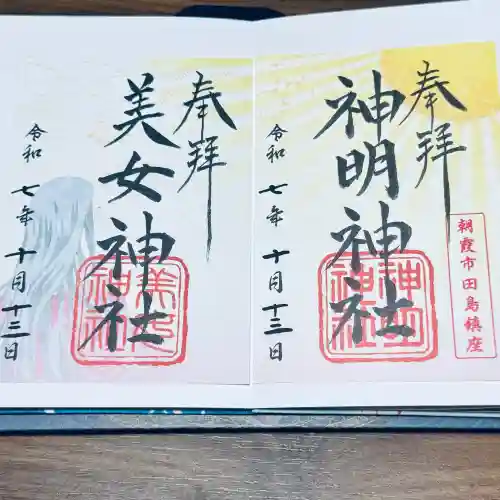 奉拝
神明神社
令和七年十月十三日
朝霞市田島鎮座
神明神社
奉拝
美女神社
令和七年十月十三日
美女神社